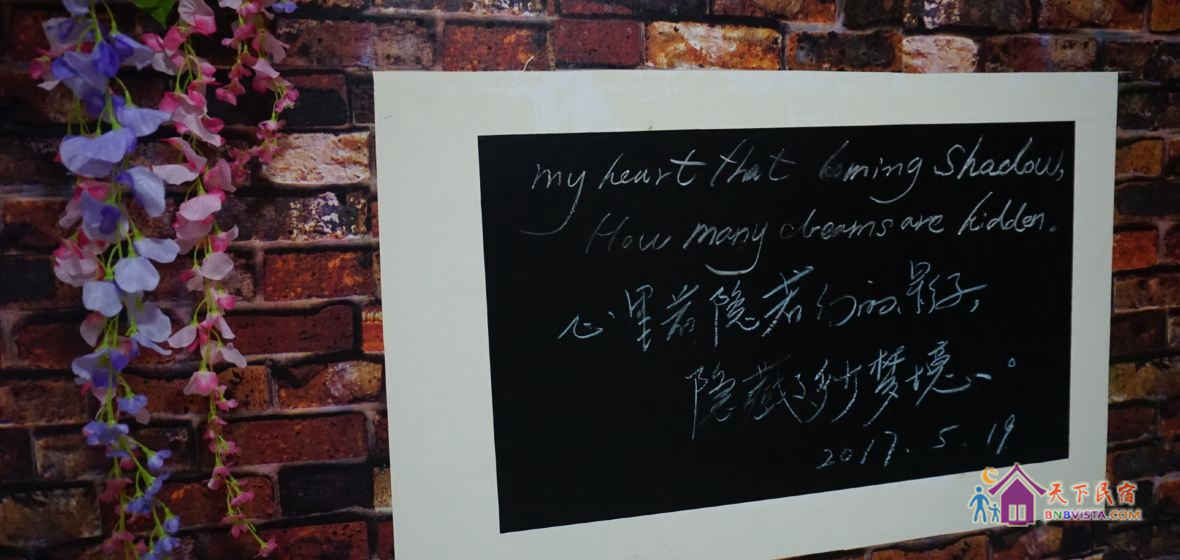 my heart that coming shadow,
How many dreams are hidden.
心里若隐若幻的影子,
隐藏了多少梦境。
2017.5.19
天下民宿
BNBVISTA.COM